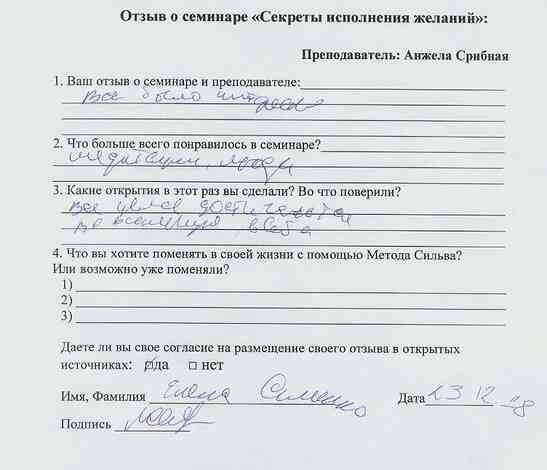 Отзыв о семинаре «Секреты исполнения желаний»:
Преподаватель: Анжела Срибная
1. Ваш отзыв о семинаре и преподавателе:
Все было интересно
2. Что больше всего понравилось в семинаре?
медитации, люди
3. Какие открытия в этот раз вы сделали? Во что поверили?
Все цели достигаются
4. Что вы хотите поменять в своей жизни с помощью Метода Сильва?
Или возможно уже поменяли?
1)
2)
3)
Даете ли вы свое согласие на размещение своего отзыва в открытых
источниках: да нет
Имя, Фамилия Елена Дата 23 12
Подпись